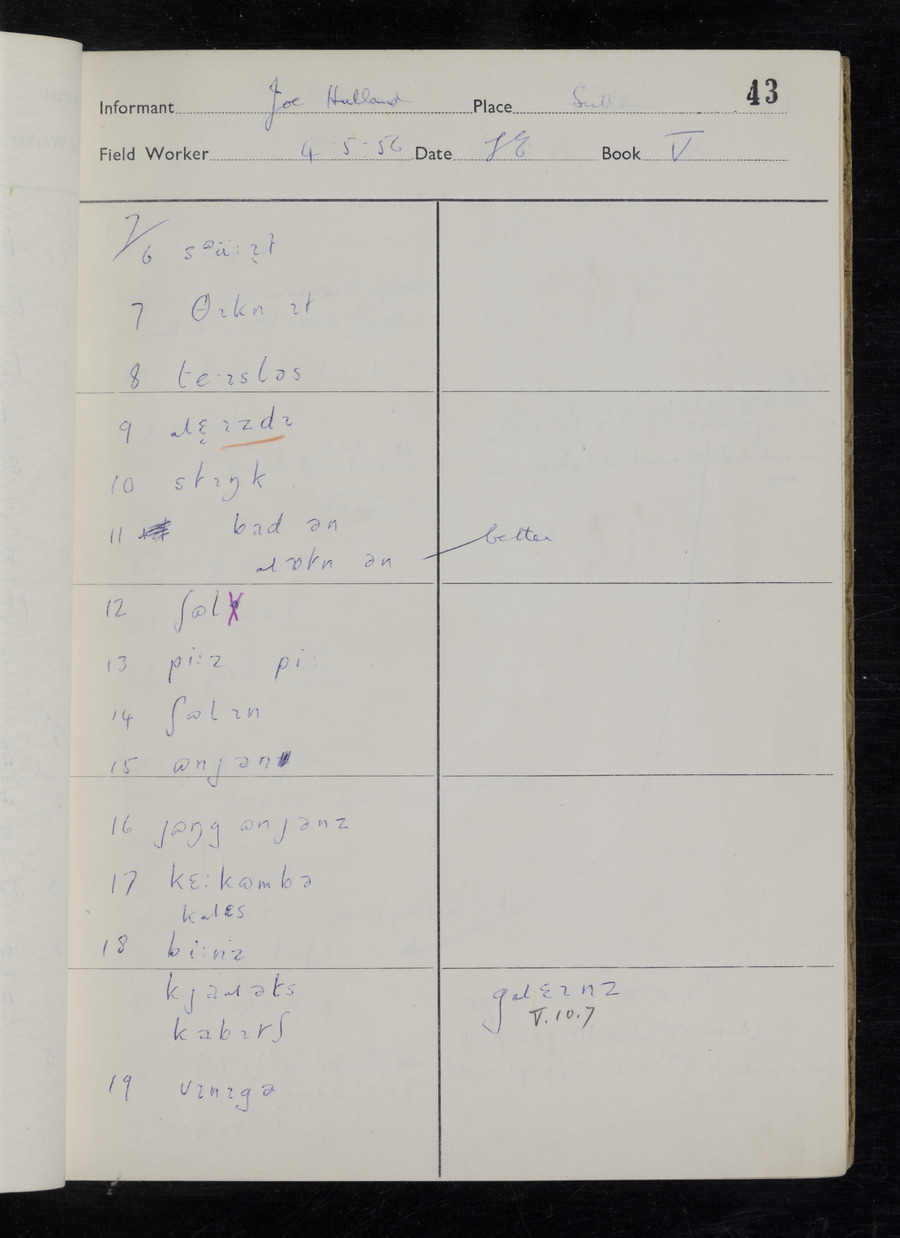 43
Informant Joe Holland Place
Field Worker 4·5·56 Date SE Book V
7/6 sᵊü:ɪt
7 θɪkn ɪt
8 te·ɪstləs
9 ɹɛ̨ɪzdɪ
10 stɪŋk
11 bad ən
ɹɒtn ən better
12 ʃɵl
13 pi:z pi:
14 ʃɵlɪn
15 ɵnjən
16 jɵŋg ɵnjənz
17 kɛ:kɵmbə
kɹɛs
18 bi:nz
kjaɹəts gɹɛɪnz
kabɪtʃ V.10.7
19 vɪnɪgə